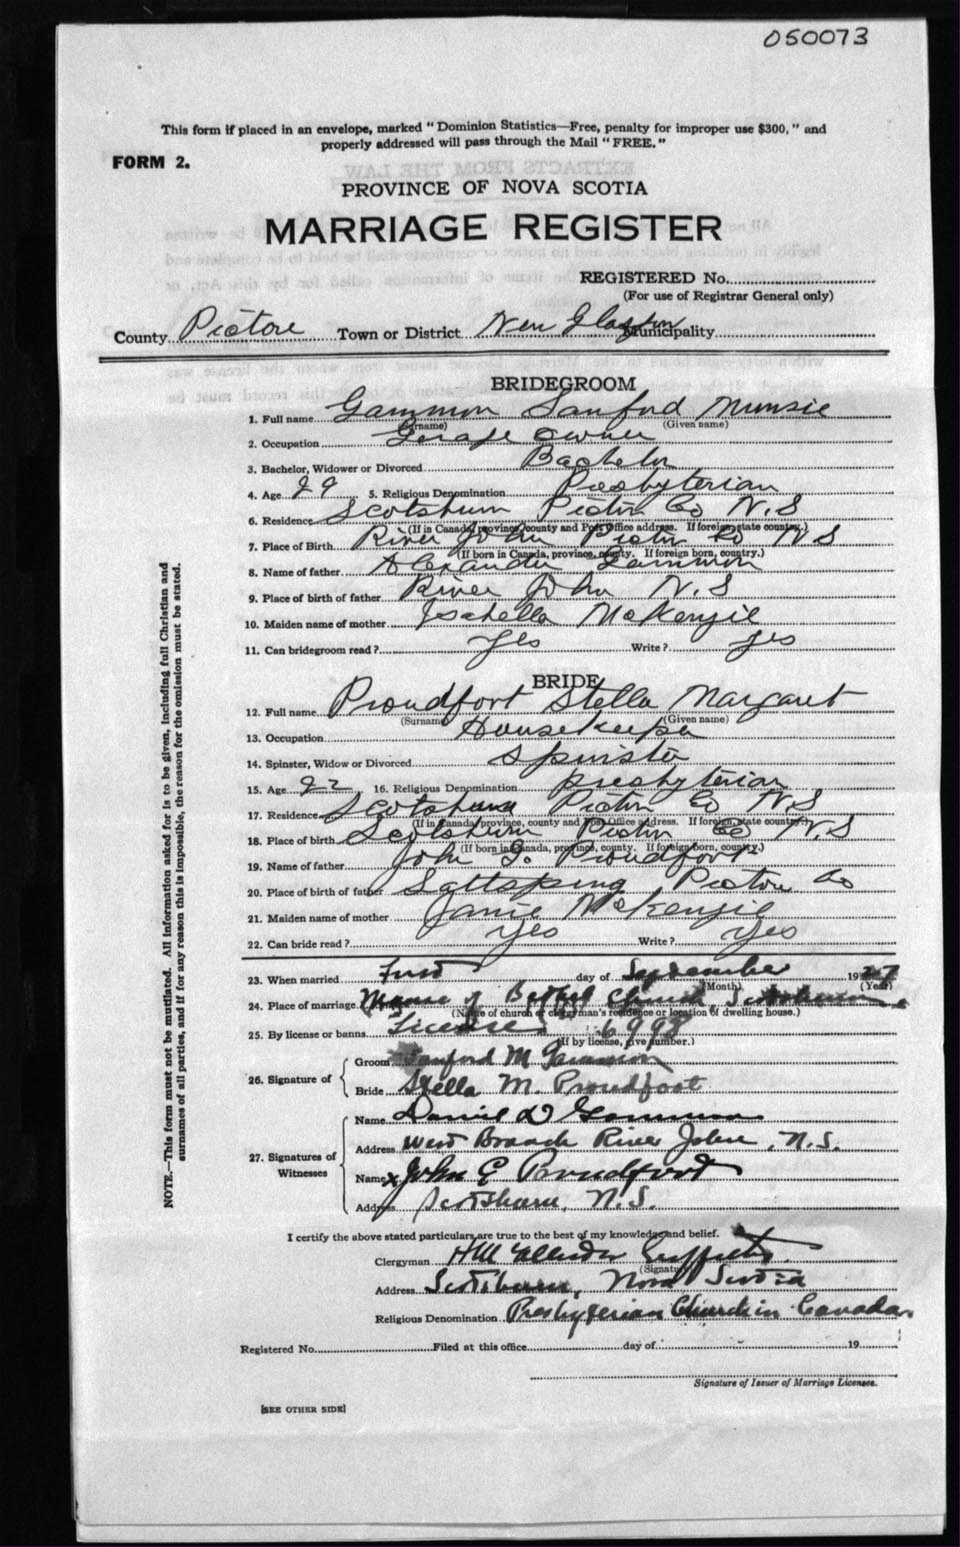 050073
This form if placed in an envelope, marked "Dominion Statistics—Free, penalty for improper use $300," and
properly addressed will pass through the Mail "FREE."
FORM 2.
PROVINCE OF NOVA SCOTIA
MARRIAGE REGISTER
REGISTERED No.
(For use of Registrar General only)
County Pictou Town or District New Glasgow Municipality
BRIDEGROOM
1. Full name Gammon Sanford Munsie
(Surname) (Given name)
2. Occupation Garage owner
3. Bachelor, Widower or Divorced Bachelor
4. Age 29 5. Religious Denomination Presbyterian
6. Residence Scotsburn Pictou Co N.S
(If in Canada, province, county and Post Office address. If foreign, state country.)
7. Place of Birth River John Pictou Co N S
(If born in Canada, province, county. If foreign born, country.)
8. Name of father Alexander Gammon
9. Place of birth of father River John N.S
10. Maiden name of mother Isabella McKenzie
11. Can bridegroom read? Yes Write? yes
BRIDE
12. Full name Proudfort Stella Margaret
(Surname) (Given name)
13. Occupation Housekeeper
14. Spinster, Widow or Divorced Spinster
15. Age 22 16. Religious Denomination presbyterian
17. Residence Scotsburn Pictou Co N.S
(If in Canada, province, county and Post Office address. If foreign, state country.)
18. Place of birth Scotsburn Pictou Co N.S
(If born in Canada, province, county. If foreign born, country.)
19. Name of father John G. Proudfort
20. Place of birth of father Saltspring Pictou Co
21. Maiden name of mother Janie McKenzie
22. Can bride read? Yes Write? yes
23. When married First day of September 1927
(Month) (Year)
24. Place of marriage Manse of Bethel Church Scotsburn.
(Name of church or clergyman's residence or location of dwelling house.)
25. By license or banns License 6998
(If by license, give number.)
26. Signature of
Groom Sanford M Gammon
Bride Stella M. Proudfoot
27. Signatures of Witnesses
Name Daniel D Gammon
Address West Branch River John, N.S.
Name x John G Proudfoot
Address Scotsburn, N.S.
I certify the above stated particulars are true to the best of my knowledge and belief.
Clergyman Griffiths
(Signature)
Address Scotsburn, Nova Scotia
Religious Denomination Presbyterian Church in Canada.
Registered No. Filed at this office day of 19
Signature of Issuer of Marriage Licenses.
[SEE OTHER SIDE]
NOTE.—This form must not be mutilated. All information asked for is to be given, including full Christian and
surnames of all parties, and if for any reason this is impossible, the reason for the omission must be stated.